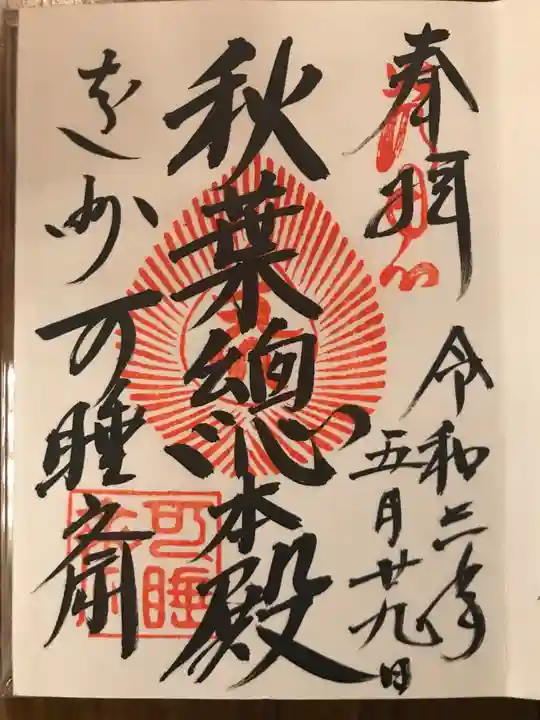 奉拝
令和三年
五月廿九日
秋葉總本殿
遠州可睡斎
可睡